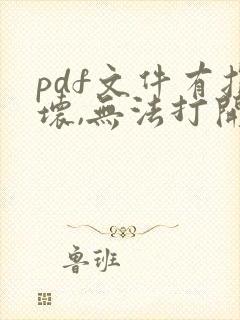 pdf文件有损
壞,無法打開
鲁班